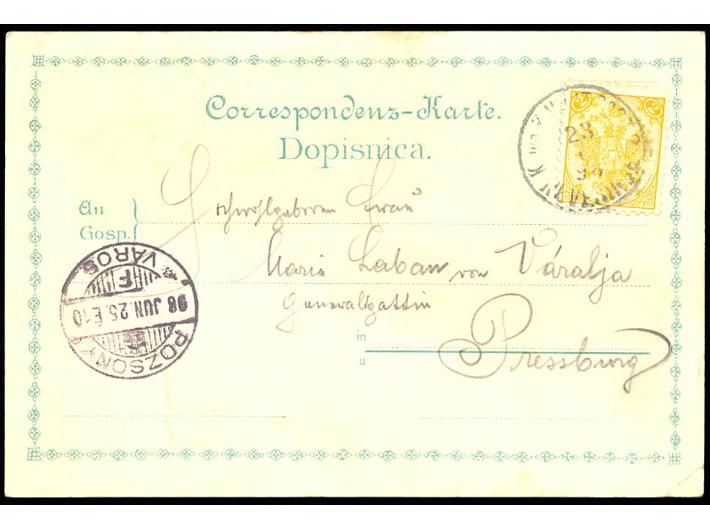 Correspondenz-Karte.
Dopisnica.
An
Gosp.
Hochwohlgeboren Frau
Marie Laban von Váralja
Generalgattin
in
u
Pressburg
2
23
POZSONY
98 JUN. 25. É 10
VÁROS
F